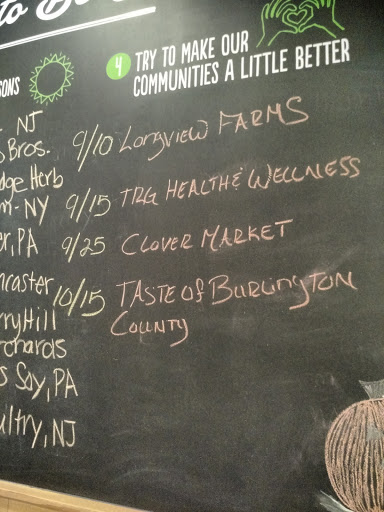 to
4 TRY TO MAKE OUR
COMMUNITIES A LITTLE BETTER
NJ
Bros.
Herb
NY
PA
Hill
Soy, PA
NJ
9/10 LONGVIEW FARMS
9/15 TRG HEALTH & WELLNESS
9/25 CLOVER MARKET
10/15 TASTE OF BURLINGTON
COUNTY